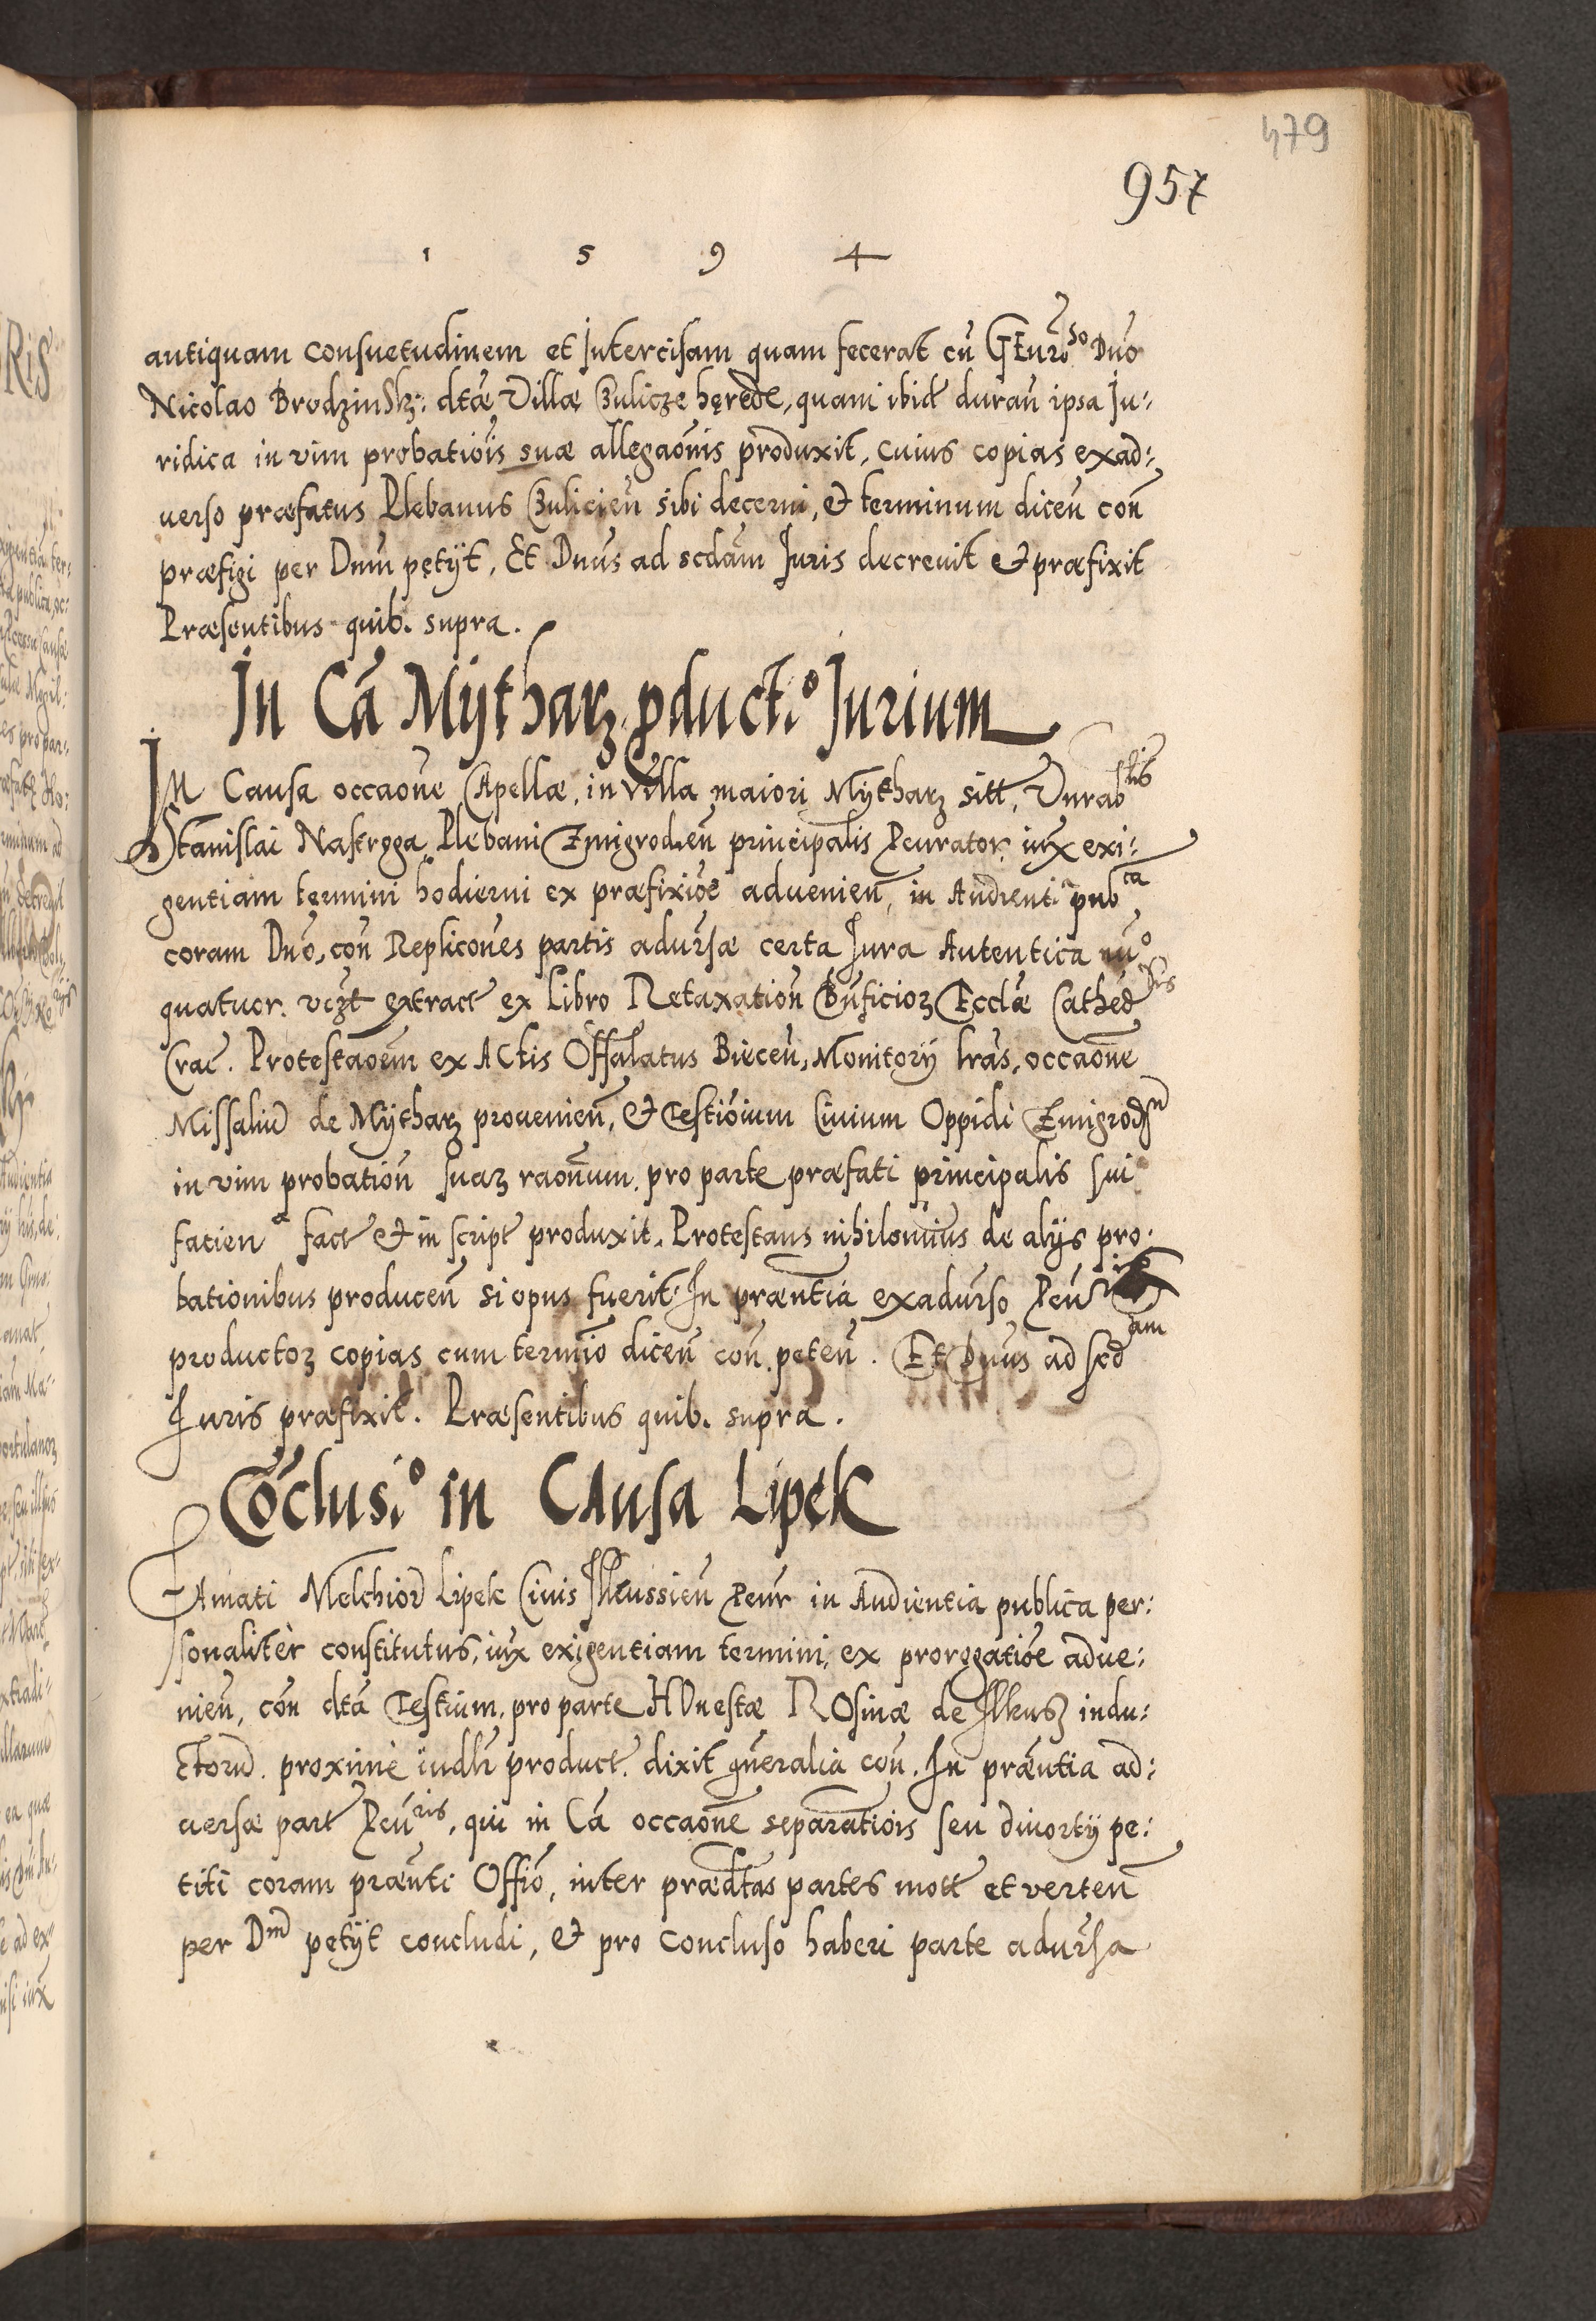 479
957
1 5 9 4
antiquam consuetudinem et Intercisam quam fecerat cũ GEnr̃oso Dño
Nicolao BrodzinSkj: dtæ Villæ Zulicze hęrede, quam ibid durañ ipsa Ju:
ridica in vim probatiõis suæ allegaõnis produxit, cuius copias exad:
uerso præfatus Plebanus Zulicień sibi decerni, et terminum diceñ coñ
præfigi per Dnm̃ petÿt, Et Dnũs ad scdãm Juris decreuit et præfixit
Præsentibus quib. supra.
In Cã Mÿtharz pduct.o Jurium
IN Causa occaoñe CApellæ, in villa maiori Mÿtharz sitt, Vnrablis
Stanislai Naskrgga Plebani Zmigrod.eñ principalis Pcurator, iux exi:
gentiam termini hodierni ex præfixiõe adueniẽn, in Audient.a pubca
coram Dño, coñ Replicoñes partis aduersæ certa Jura Autentica nũo
quatuor. vcz̃t extract ex Libro Retaxatioñ Bñficioꝝ Ecclæ Cathedris
Crac. Protestaoẽm ex ACtis Offalatus Bieceñ, Monitorÿ lrãs, occaoñe
Missaliũ de Mÿtharz prouenieñ, et Testiõium Ciuium Oppidi Zmigroden
in vim probatioñ suaꝝ raoñum, pro parte præfati principalis sui
facien a fact et in script produxit, Protestans nihilomiñus de alÿs pro:
bationibus produceñ si opus fuerit. In præntia exadurso Pcuris
productoꝝ copias cum termiõ diceñ coñ peteñ. Et Dnũs ad scdam
Juris præfixit. Præsentibus quib. supra.
Cõclusi.o in CAusa Lipek
FAmati Melchior Lipek Ciuis Ilkussieñ Pcur in Audientia publica per:
sonalitèr constitutus, iux exigentiam termini, ex prorogatiõe adue:
nieñ, coñ dtã Testium, pro parte HOnestæ ROsinæ de Ilkusz indu:
ctorũ. proximè iudlr product. dixit gñeralia coñ. In præntia ad:
uersæ part Pcuris, qui in Cã occaoñe separatiõis seu diuortÿ pe:
titi coram præntĩ Offiõ, inter prædtas partes mott et verteñ
per Dm̃ petÿt concludi, et pro concluso haberi parte adur̃sa